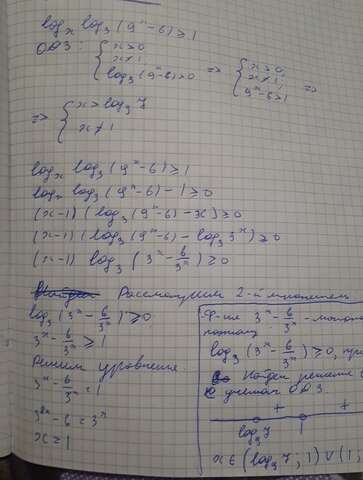 logₓ log₃(9ˣ-6)≥1
ОДЗ: { x>0 x≠1 log₃(9ˣ-6)>0 => { x>0, x≠1, 9ˣ-6>1 =>
=> { x>log₉7 x≠1
logₓ log₃(9ˣ-6)≥1
logₓ log₃(9ˣ-6)-1≥0
(x-1)(log₃(9ˣ-6)-x)≥0
(x-1)(log₃(9ˣ-6)-log₃3ˣ)≥0
(x-1) log₃(3ˣ-6/3ˣ)≥0
Рассмотрим 2-й множитель
log₃(3ˣ-6/3ˣ)≥0
3ˣ-6/3ˣ≥1
Решим уравнение
3ˣ-6/3ˣ=1
3²ˣ-6=3ˣ
x=1
Ф-ция 3ˣ-6/3ˣ -
поэтому
log₃(3ˣ-6/3ˣ)≥0, при
Найдем решение
с учетом ОДЗ.
+ +
log₉7 1
x∈(log₉7; 1)∪(1;